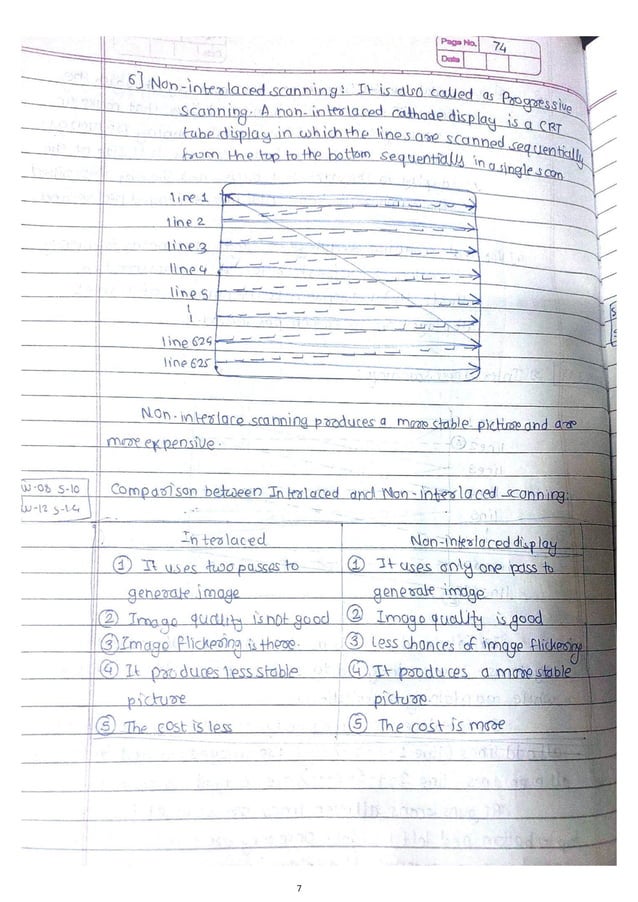 Page No. 74
Date
6] Non-interlaced scanning: It is also called as Progressive
scanning. A non-interlaced cathode display is a CRT
tube display in which the lines are scanned sequentially
from the top to the bottom sequentially in a single scan
line 1
line 2
line 3
line 4
line 5
line 624
line 625
Non-interlace scanning produces a more stable picture and are
more expensive.
W-08 S-10
W-12 S-14
Comparison between Interlaced and Non-interlaced scanning:
Interlaced Non-interlaced display
① It uses two passes to ① It uses only one pass to
generate image generate image
② Image quality is not good ② Image quality is good
③ Image flickering is there. ③ Less chances of image flickering
④ It produces less stable ④ It produces a more stable
picture picture.
⑤ The cost is less ⑤ The cost is more
7